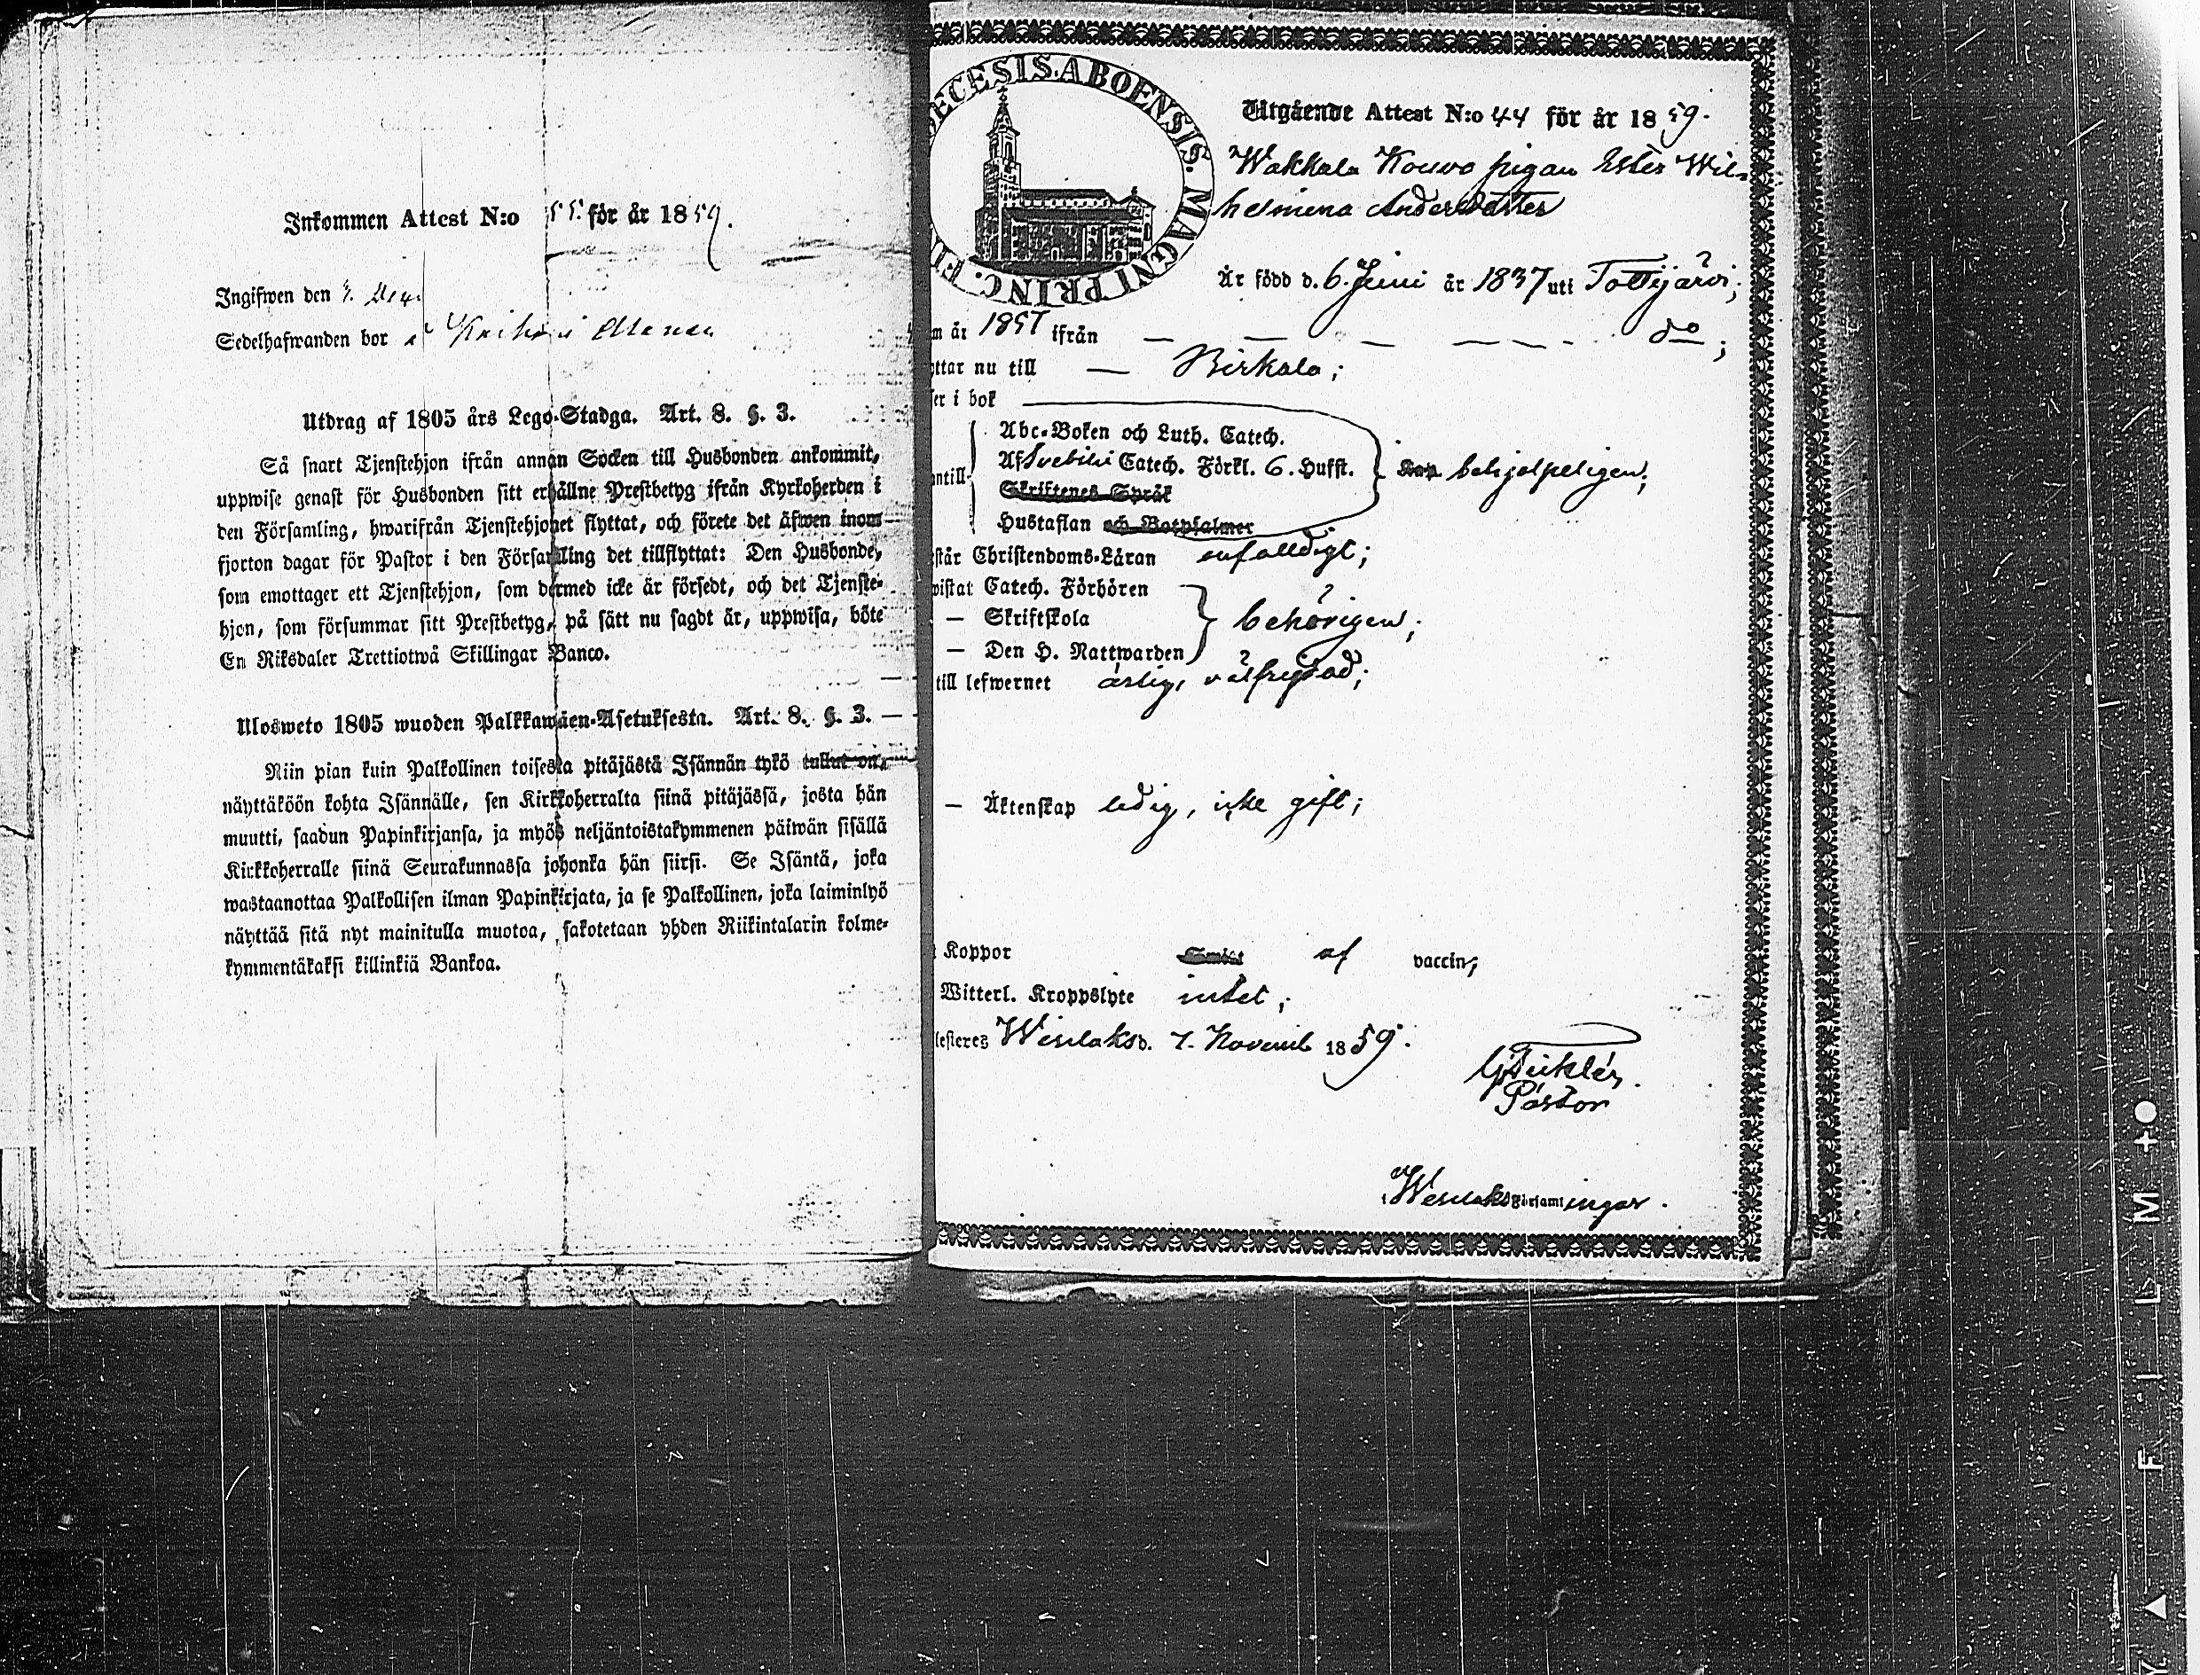 Inkommen Attest N:o 55. för år 1859.
Ingifwen den
Sedelhafwanden bor
Utdrag af 1805 års Lego-Stadga. Art. 8. §. 3.
Så snart Tjenstehjon ifrån annan Socken till Husbonden ankommit,
uppwise genast för Husbonden sitt erhållne Prestbetyg ifrån Kyrkoherden i
den Församling, hwarifrån Tjenstehjonet flyttat, och förete det äfwen inom
fjorton dagar för Pastor i den Församling det tillflyttat: Den Husbonde,
som emottager ett Tjenstehjon, som dermed icke är försedt, och det Tjenste-
hjon, som försummar sitt Prestbetyg, på sätt nu sagdt är, uppwisa, böte
En Riksdaler Trettiotwå Skillingar Banco.
Ulosweto 1805 wuoden Palkkawäen-Asetuksesta. Art. 8. §. 3.
Niin pian kuin Palkollinen toisesta pitäjästä Isännän tykö tullut on,
näyttäköön kohta Isännälle, sen Kirkkoherralta siinä pitäjässä, josta hän
muutti, saadun Papinkirjansa, ja myös neljäntoistakymmenen päiwän sisällä
Kirkkoherralle siinä Seurakunnassa johonka hän siirsi. Se Isäntä, joka
wastaanottaa Palkollisen ilman Papinkirjata, ja se Palkollinen, joka laiminlyö
näyttää sitä nyt mainitulla muotoa, sakotetaan yhden Riikintalarin kolme-
kymmentäkaksi killinkiä Bankoa.
ECESIS. ABOENSIS. MAGNI PRINC. FI
Utgående Attest N:o 44 för år 1859.
Wakkala Kouvo pigan Ester Wil-
helmina Andersdotter
Är född d. 6. Juni år 1837 uti Tottijärvi;
m år 1857 ifrån — — — — — do;
yttar nu till — Birkala;
er i bok
Abc-Boken och Luth. Catech.
Af Svebilii Catech. Förkl. 6. Hufst.
antill behjelpeligen;
Skriftenes Språk
Hustaflan och Botpsalmer
står Christendoms-Läran enfalldigt;
wistat Catech. Förhören
— Skriftskola behörigen;
— Den H. Nattwarden
till lefwernet ärlig, välfrejdad;
— Äktenskap ledig, icke gift;
Koppor af vaccin;
Witterl. Kroppslyte intet;
testeres Wesilaks d. 7. Novemb 1859.
Pastor
i Wesilaks Församlingar.
M FILM